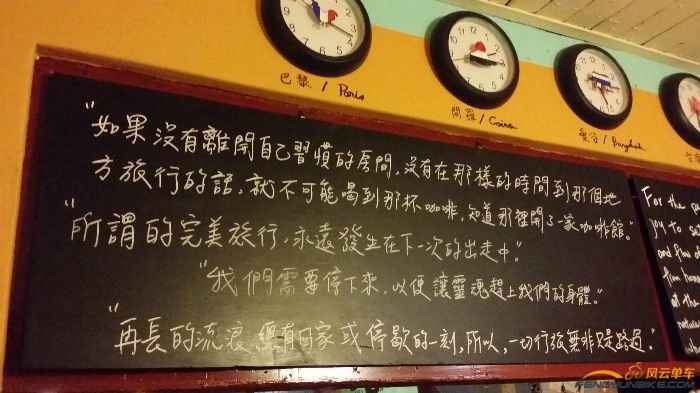 巴黎 / Paris
開羅 / Cairo
曼谷 / Bangkok
"如果沒有離開自己習慣的房間,沒有在那樣的時間到那個地
方旅行的話,就不可能喝到那杯咖啡,知道那裡開了一家咖啡館。"
"所謂的完美旅行,永遠發生在下一次的出走中。"
"我們需要停下來,以便讓靈魂趕上我們的身體。"
"再長的流浪總有回家或停歇的一刻,所以,一切行旅無非只是路過。"
For the
joy to
and
at the
风云单车
FENGYUNBIKE.COM